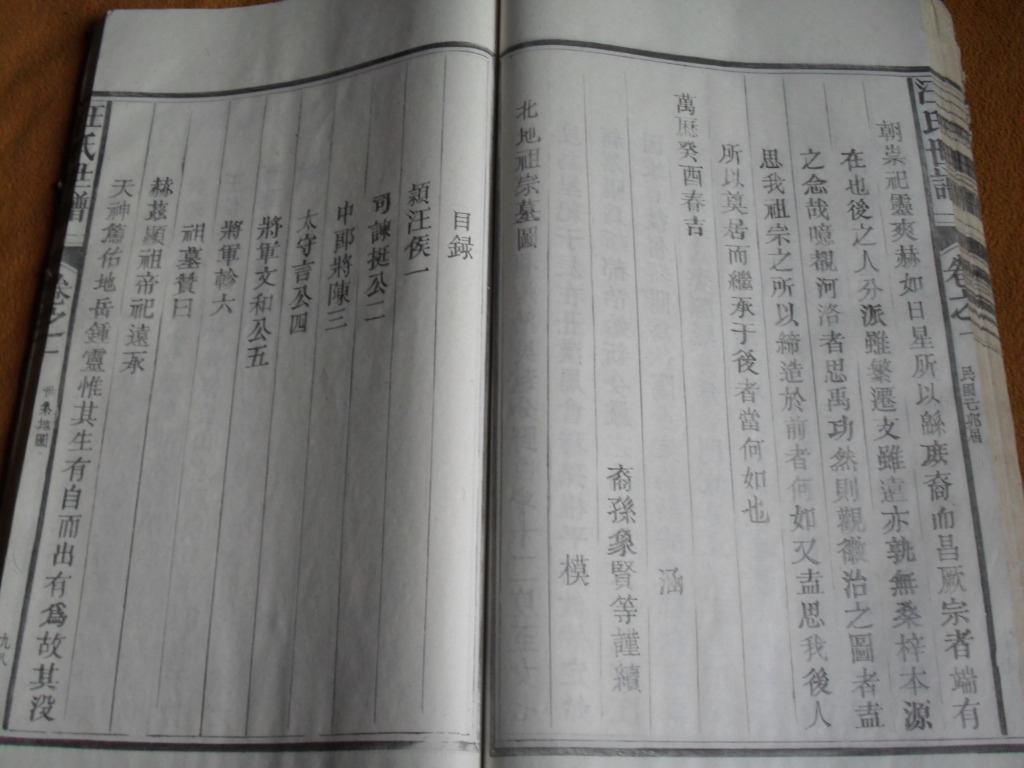 汪氏世譜
卷之一
朝崇祀靈爽赫如日星所以緜庻裔而昌厥宗者端有
在也後之人分派雖繁遷支雖遠亦孰無桑梓本源
之念哉噫覩河洛者思禹功然則觀徽治之圖者盍
思我祖宗之所以締造於前者何如又盍思我後人
所以奠居而繼承于後者當何如也
萬歷癸酉春吉
涵
裔孫象賢等謹續
模
北地祖宗墓圖
目録
潁汪侯一
司諫挺公二
中郎將陳三
太守言公四
將軍文和公五
將軍輪六
祖墓贊曰
赫茲顯祖帝祀遠承
天神篤佑地岳鍾靈惟其生有自而出有為故其没
汪氏世譜
卷之一
九八